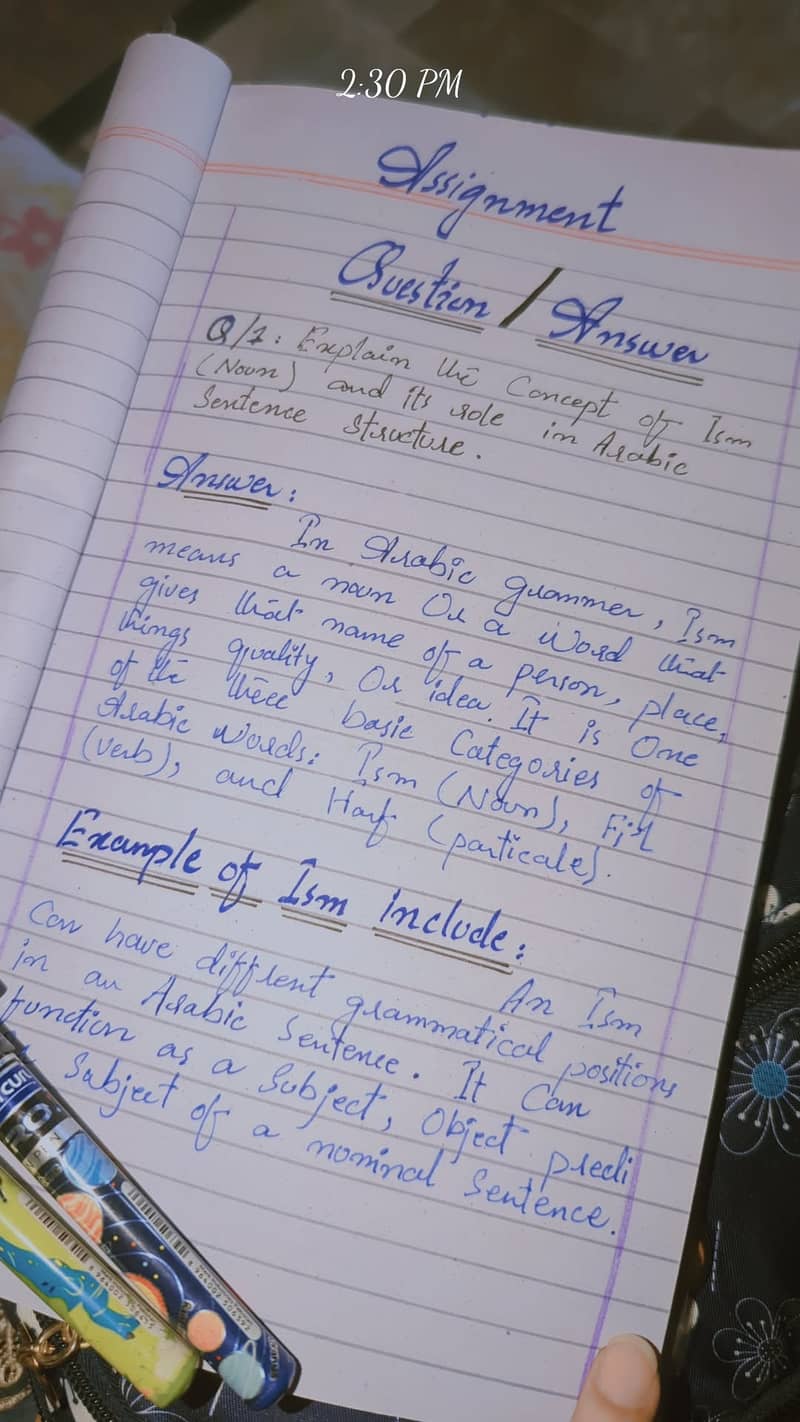 2:30 PM
Assignment
Question / Answer
Q/1: Explain the Concept of Ism
(Noun) and its role in Arabic
Sentence Structure.
Answer:
In Arabic grammer, Ism
means a noun Or a word that
gives that name of a person, place,
things quality, Or idea. It is One
of the three basic Categories of
Arabic words: Ism (Noun), Fi'l
(verb), and Harf (particale).
Example of Ism include:
An Ism
Can have diffrent grammatical positions
in an Arabic Sentence. It Can
function as a Subject, Object predi
Subject of a nominal Sentence.